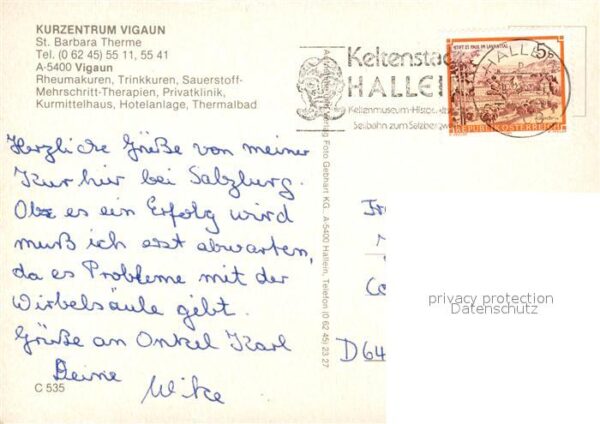 KURZENTRUM VIGAUN
St. Barbara Therme
Tel. (0 62 45) 55 11, 55 41
A-5400 Vigaun
Rheumakuren, Trinkkuren, Sauerstoff-
Mehrschritt-Therapien, Privatklinik,
Kurmittelhaus, Hotelanlage, Thermalbad
Herzliche Grüße von meiner
Kur hier bei Salzburg.
Ob es ein Erfolg wird
muß ich erst abwarten,
da es Probleme mit der
Wirbelsäule gibt.
Grüße an Onkel Karl
Deine
C 535
Verlag Foto Gebhart KG., A-5400 Hallein, Telefon (0 62 45) 23 27
Keltenstad
HALLEI
Keltenmuseum-Histor.
Seilbahn zum Salzberg
HALLEIN
STIFT ST. PAUL IM LAVANTTAL
5
REPUBLIK ÖSTERREICH
D64
privacy protection
Datenschutz